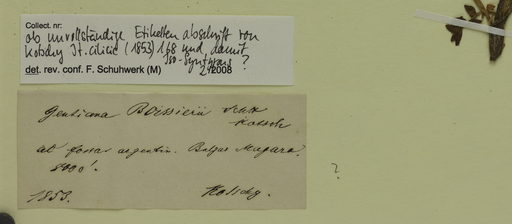 Collect. nr:
ob unvollständige Etiketten abschrift von
Kotschy It. cilic. (1853) 168 und damit
Iso-Syntypus ?
det. rev. conf. F. Schuhwerk (M) 2/2008
Gentiana Boissieri Schtt
Kotsch
ad fossas argentin. Bulgar Magara.
8000'.
1853. Kotschy.
?